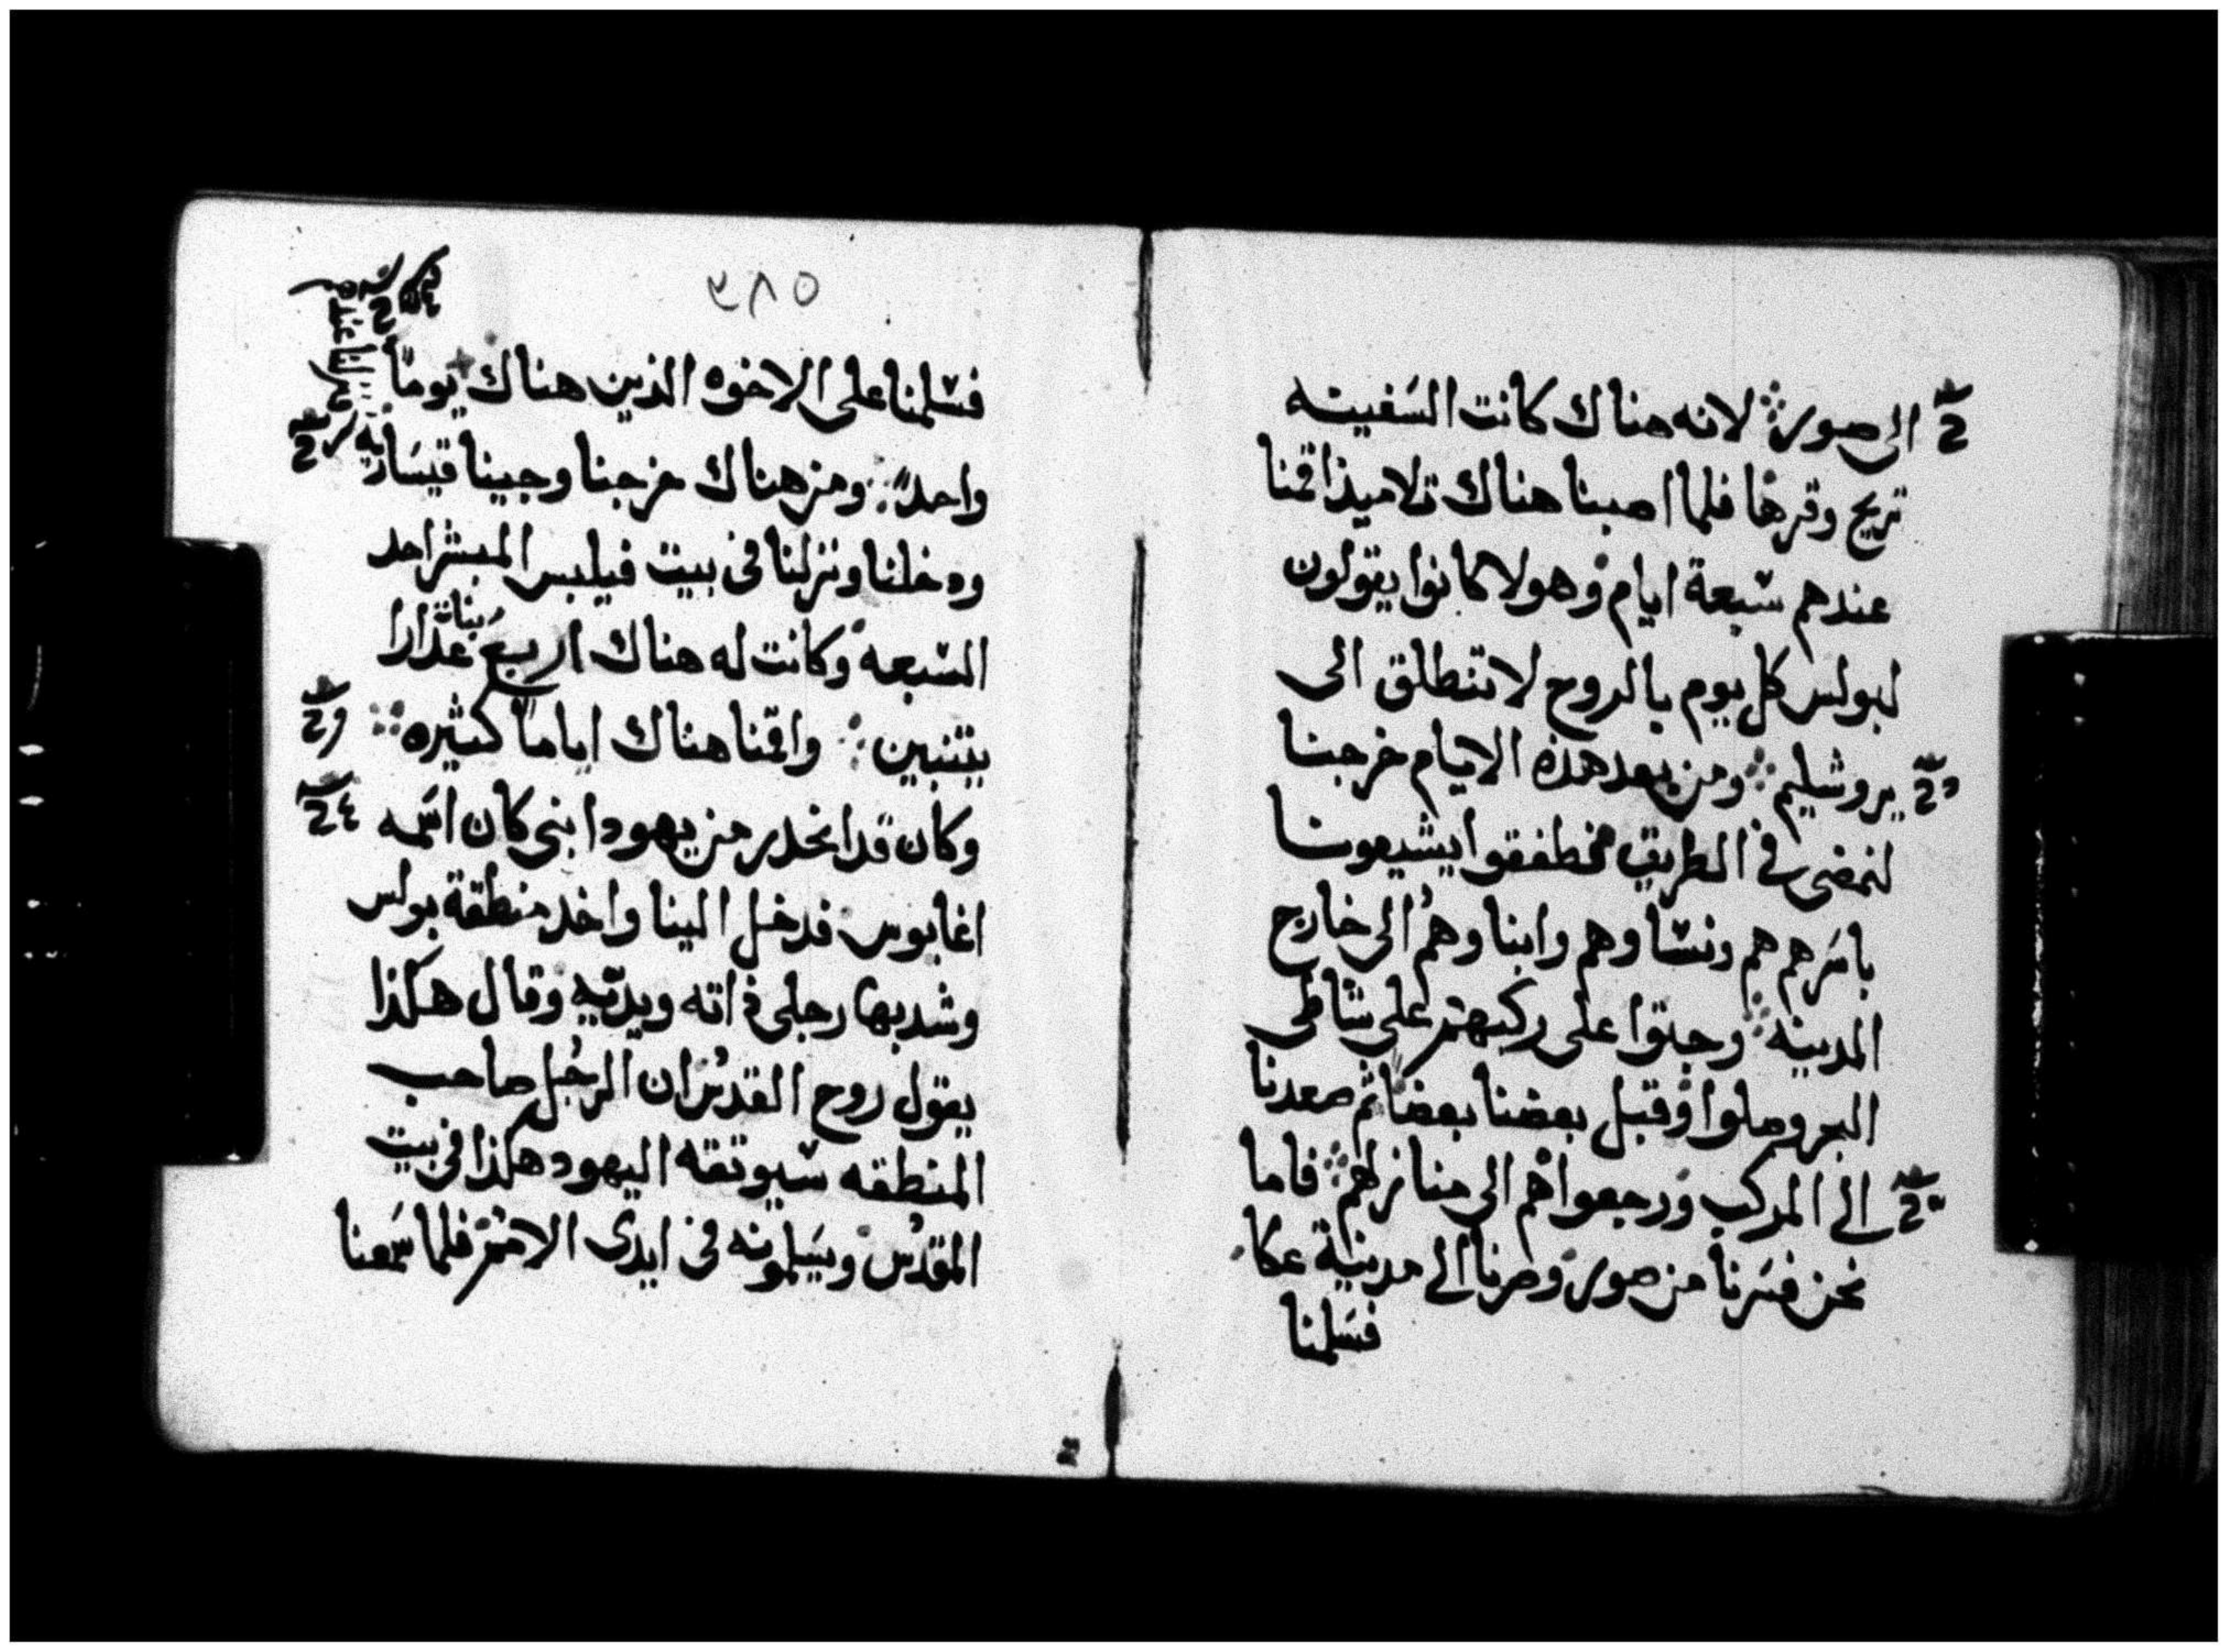 الى صور ؛ لانه هناك كانت السفينه
تريح وقرها فلما اصبنا هناك تلاميذ اقمنا
عندهم سبعة ايام وهولا كانوا يقولون
لبولس كل يوم بالروح لا تنطلق الى
يروشليم ؛ ومن بعد هذه الايام خرجنا
لنمضى فى الطريق فطفقوا يشيعوننا
باسرهم هم ونساوهم وابناوهم الى خارج
المدينه ؛ وجثوا على ركبهم على شاطى
البحر وصلوا وقبل بعضنا بعضا ثم صعدنا
الى المركب ورجعوا هم الى منازلهم ؛ فاما
نحن فسرنا من صور وصرنا الى مدينة عكا
فسلمنا
٥٨٢
فسلمنا على الاخوه الذين هناك يوماً
واحداً ؛ ومن هناك خرجنا وجينا قيسارية
ودخلنا ونزلنا فى بيت فيلبس المبشر احد
السبعه وكانت له هناك اربع بنات عذارا
يتنبين ؛ واقمنا هناك اياماً كثيره ؛
وكان قد انحدر من يهودا نبى كان اسمه
اغابوس فدخل الينا واخد منطقة بولس
وشد بها رجلى ذاته ويديه وقال هكذا
يقول روح القدس ان الرجل صاحب
المنطقه سيوتقه اليهود هكذا فى بيت
المقدس ويسلمونه فى ايدى الامم فلما سمعنا